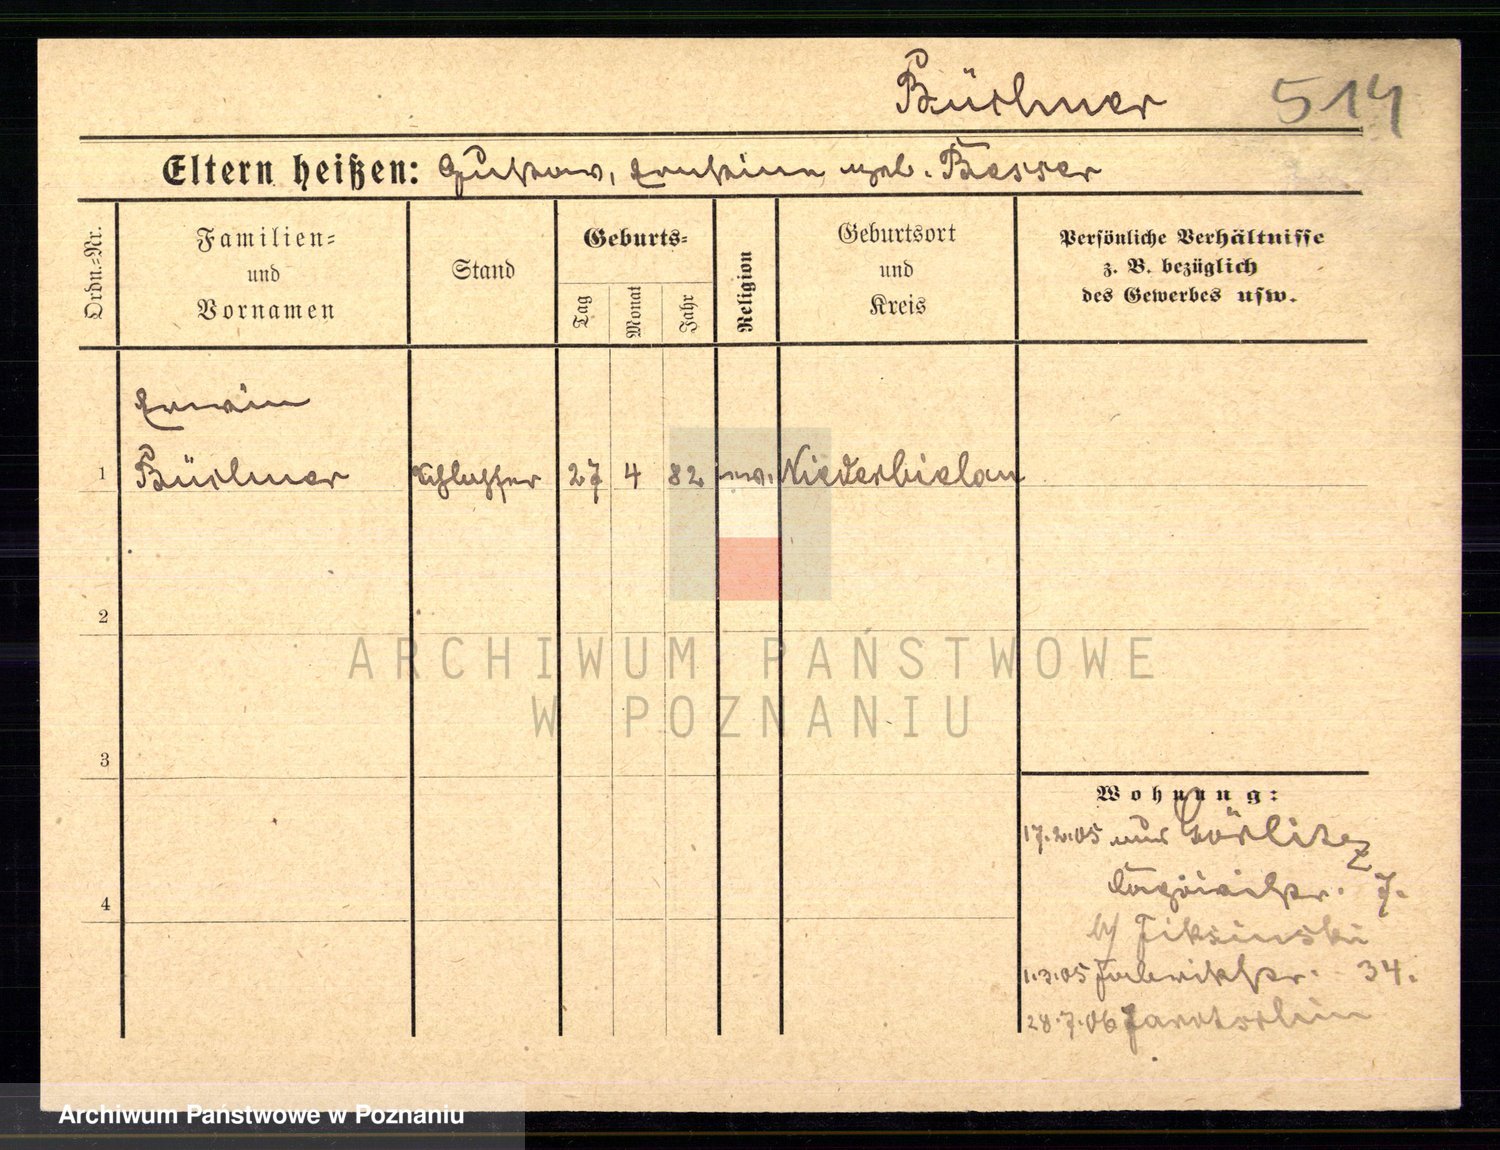 Büchner 514
Eltern heißen: Gustav, Ernstine geb. Besser
Ordn.-Nr.
Familien-
und
Vornamen
Stand
Geburts-
Tag
Monat
Jahr
Religion
Geburtsort
und
Kreis
Persönliche Verhältnisse
z. B. bezüglich
des Gewerbes usw.
Erwin
1 Büchner Schlosser 27 4 82 ev. Niederbielau
2
3
4
Wohnung:
17.2.05 aus Görlitz
7.
b/ Fiksinski
1.3.05 Fabrikstr. 34.
28.7.06
ARCHIWUM PAŃSTWOWE
W POZNANIU
Archiwum Państwowe w Poznaniu